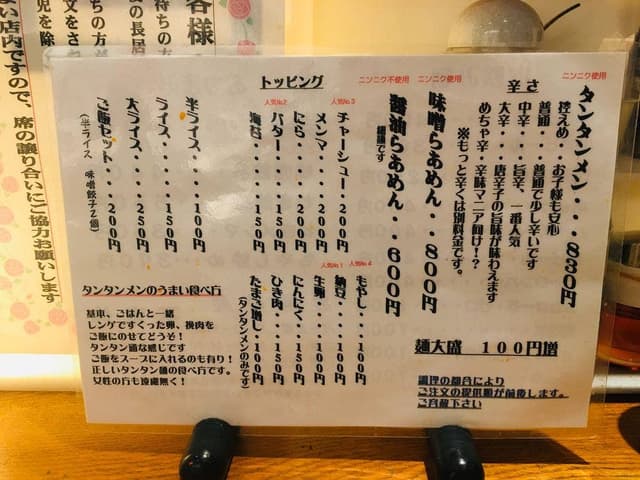 ニンニク使用
タンタンメン・・・830円
辛さ
控えめ・・お子様も安心
普通・・・普通で少し辛いです
中辛・・・旨辛、一番人気
大辛・・・唐辛子の旨味が味わえます
めちゃ辛・辛味マニア向け！？
※もっと辛くは別料金です。
ニンニク使用
味噌らあめん・・800円
ニンニク不使用
醤油らあめん・・600円
細麺です
麺大盛 100円増
調理の都合により
ご注文の提供順が前後します。
ご容赦下さい
トッピング
人気No.3
チャーシュー・200円
メンマ・・・・200円
にら・・・・・200円
人気No.2
バター・・・・150円
海苔・・・・・150円
人気No.4
もやし・・・150円
納豆・・・・100円
人気No.1
生卵・・・・100円
にんにく・・150円
ひき肉・・・150円
たまご増し・100円
(タンタンメンのみです)
半ライス・・・100円
ライス・・・・150円
大ライス・・・250円
ご飯セット・・200円
(半ライス 味噌餃子2個)
タンタンメンのうまい食べ方
基本、ごはんと一緒
レンゲですくった卵、挽肉を
ご飯にのせてどうぞ！
タンタン頭な感じです
ご飯をスープに入れるのも有り！
正しいタンタン麺の食べ方です。
女性の方も遠慮無く！
客様
待ちの方
の長居
文をされ
児を除
い店内ですので、席の譲り合いにご協力お願いします